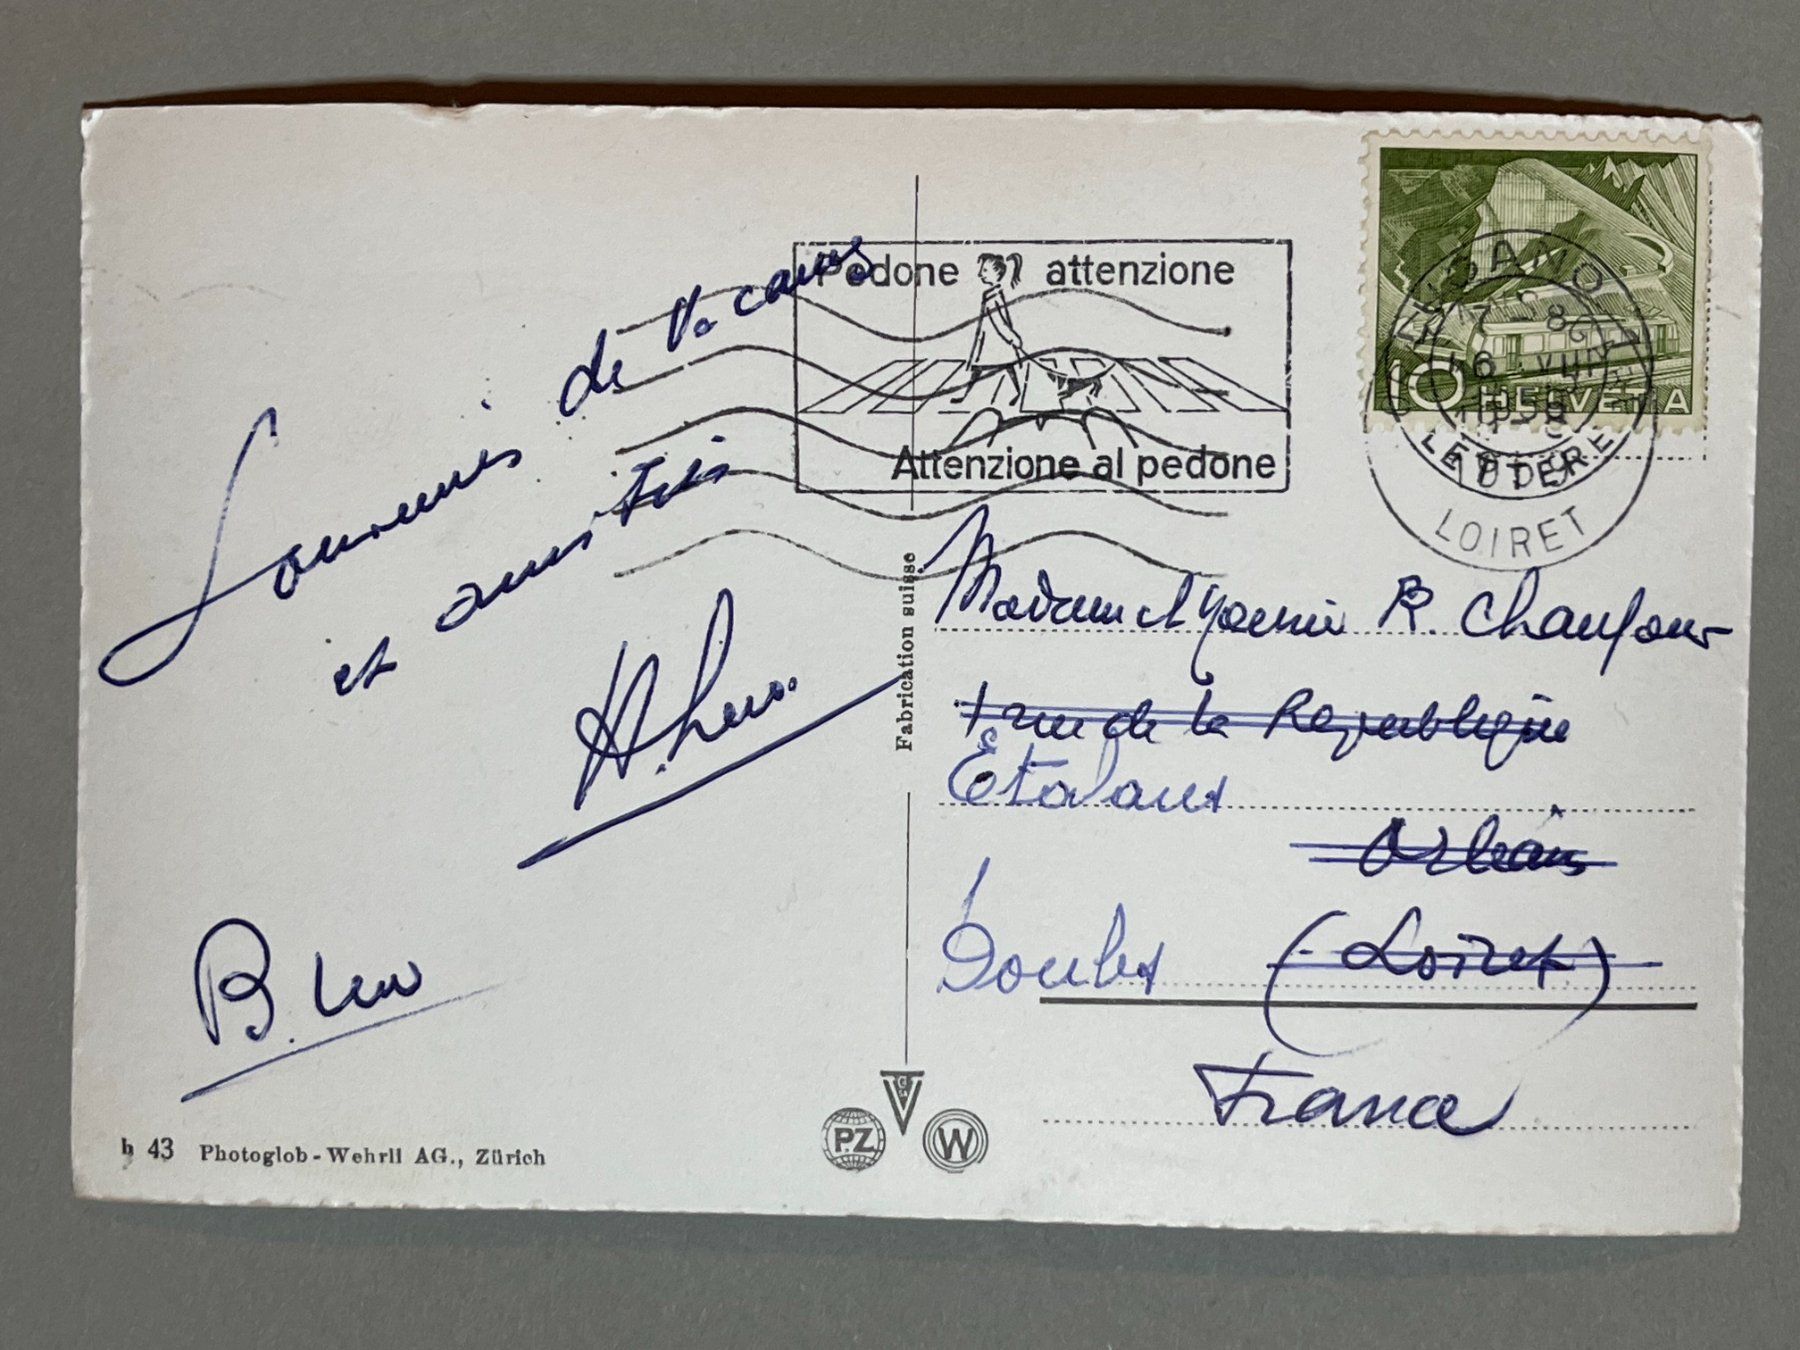 Souvenirs de Vacances
et amitiés
B.
b 43 Photoglob-Wehrli AG., Zürich
Fabrication suisse
PZ
W
Pedone attenzione
Attenzione al pedone
10 HELVETIA
LUGANO
LETTERE
LOIRET
Madame et Monsieur R. Chaufour
1 rue de la Republique
Etalans
Orléans
Doubs
(Loiret)
France